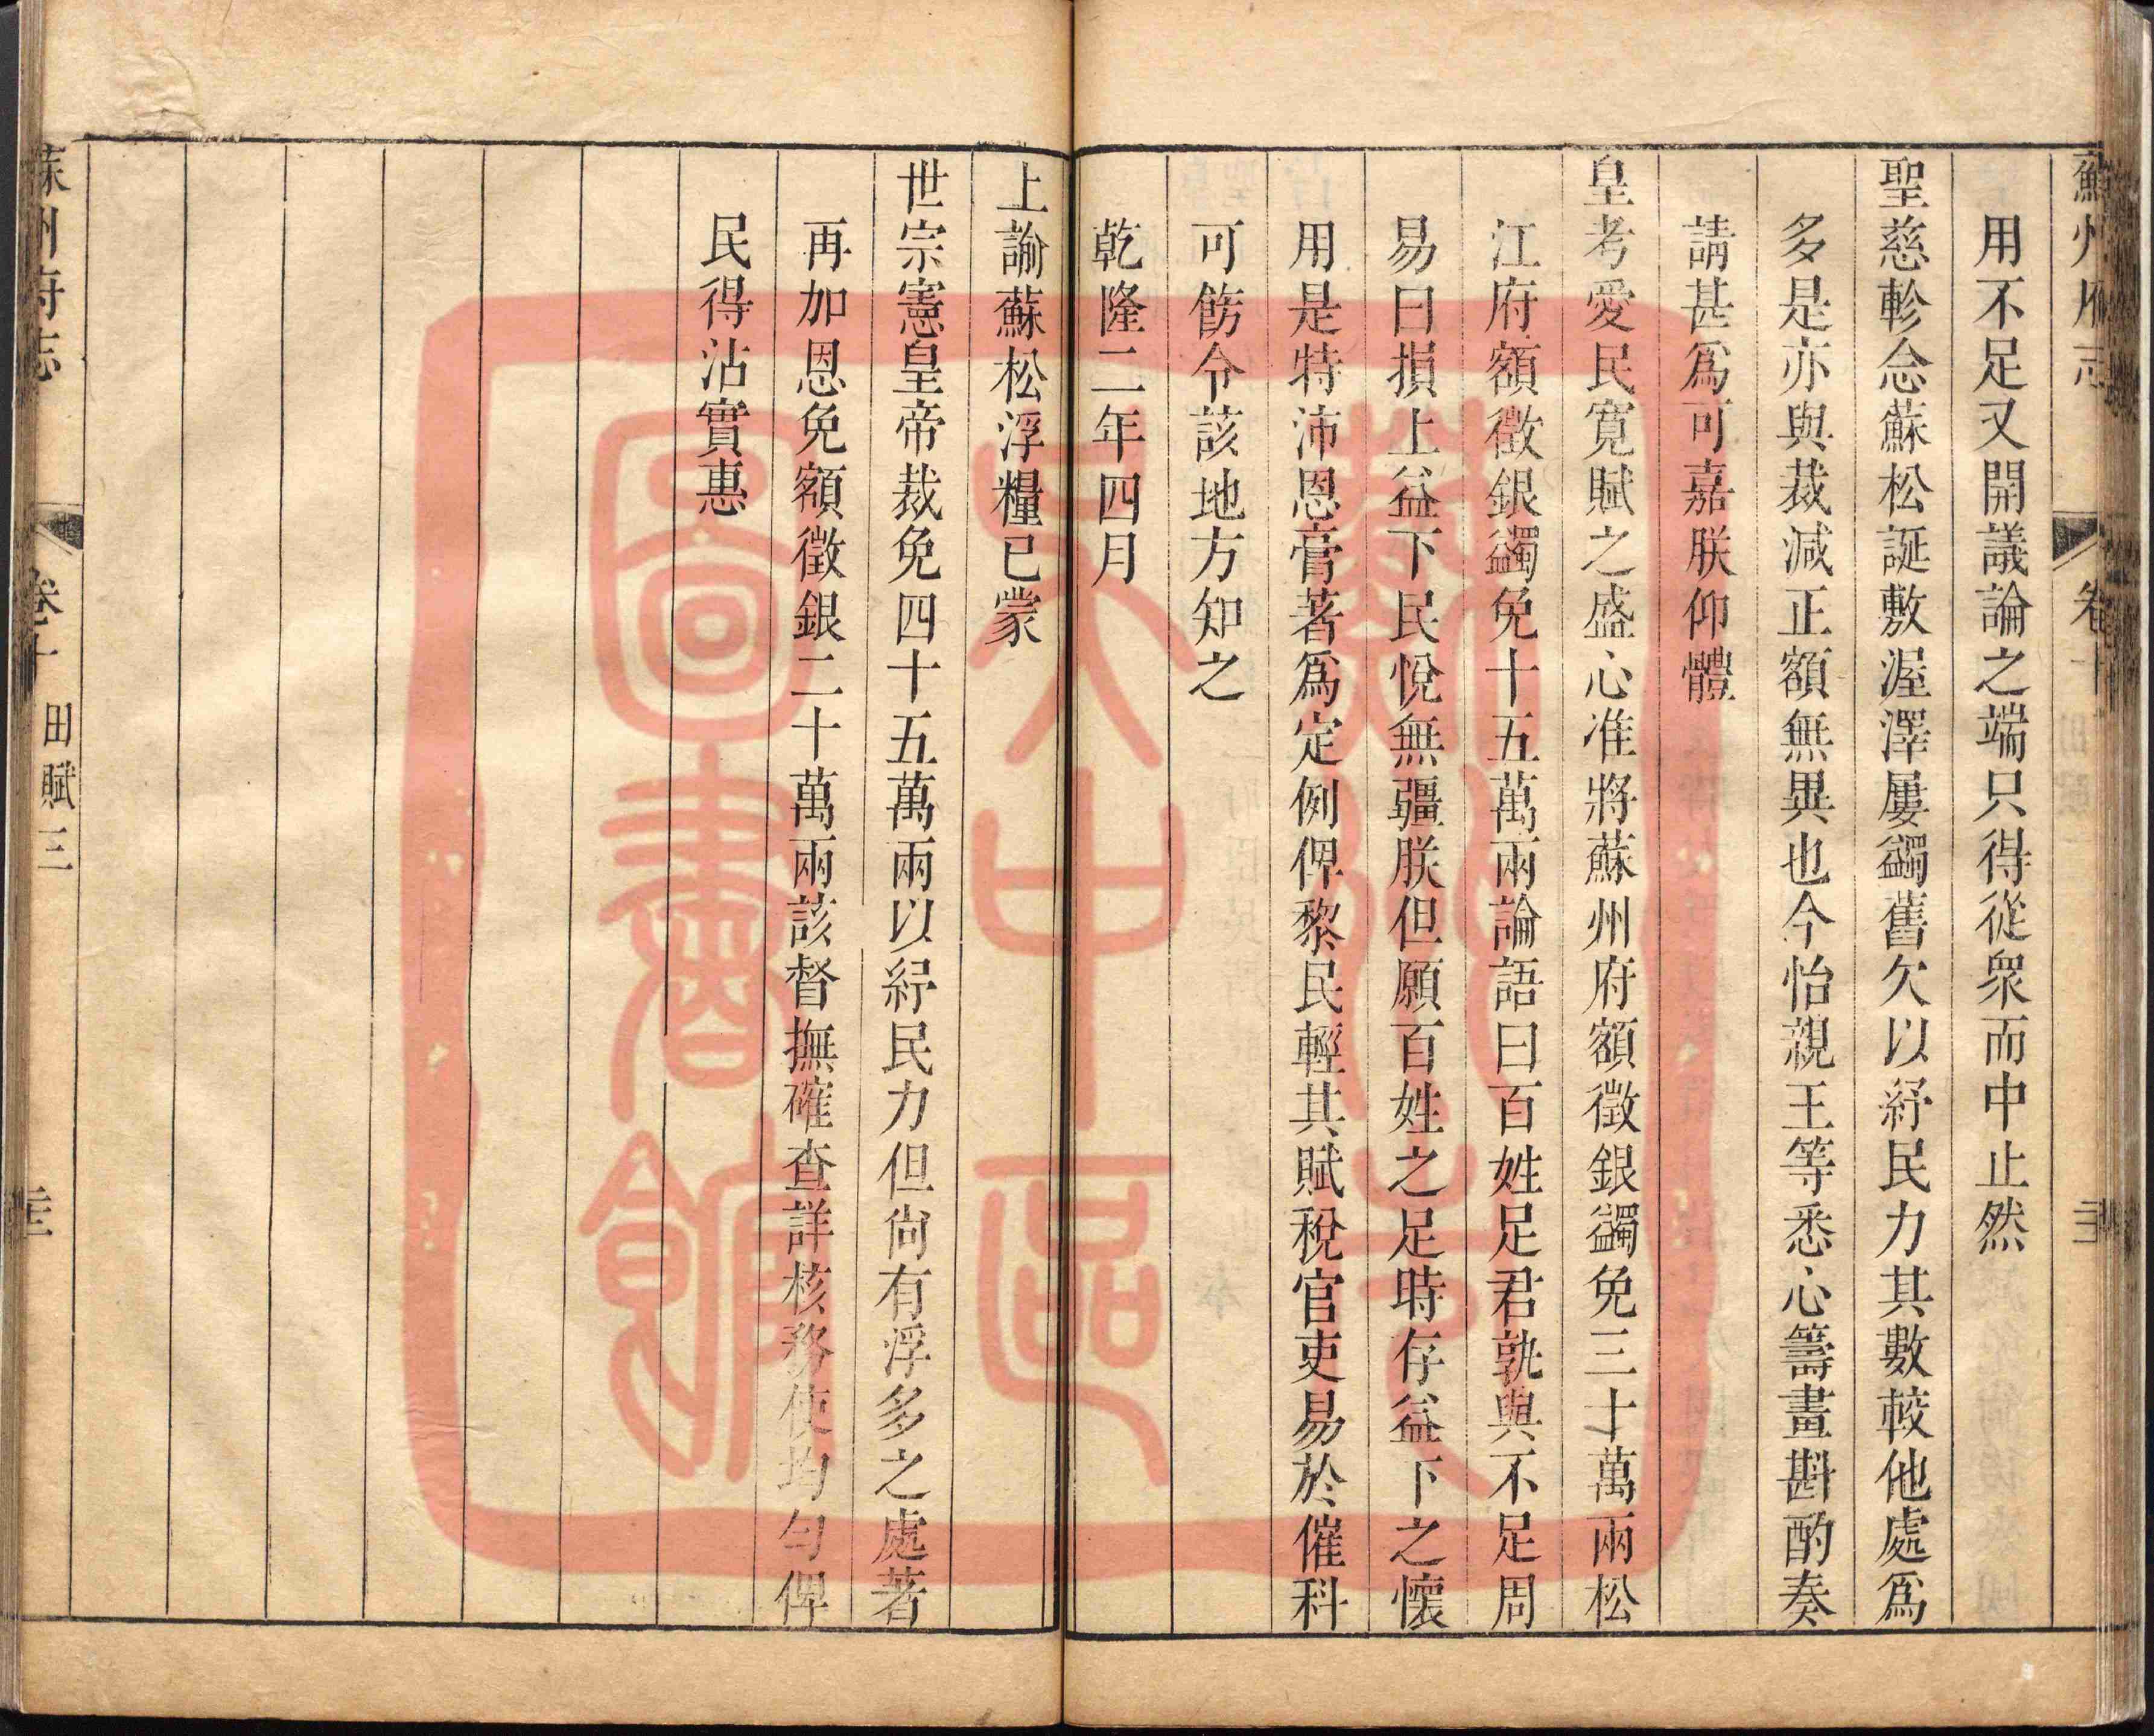 蘇州府志
卷十
用不足又開議論之端只得從衆而中止然
聖慈軫念蘇松誕敷渥澤屢蠲舊欠以紓民力其數較他處爲
多是亦與裁減正額無異也今怡親王等悉心籌畫斟酌奏
請甚爲可嘉朕仰體
皇考愛民寬賦之盛心准將蘇州府額徵銀蠲免三十萬兩松
江府額徵銀蠲免十五萬兩論語曰百姓足君孰與不足周
易曰損上益下民悅無疆朕但願百姓之足時存益下之懷
用是特沛恩膏著爲定例俾黎民輕其賦稅官吏易於催科
可飭令該地方知之
乾隆二年四月
上諭蘇松浮糧已蒙
世宗憲皇帝裁免四十五萬兩以紓民力但尙有浮多之處著
再加恩免額徵銀二十萬兩該督撫確查詳核務使均勻俾
民得沾實惠
蘇州府志
卷十
田賦三
圖書館